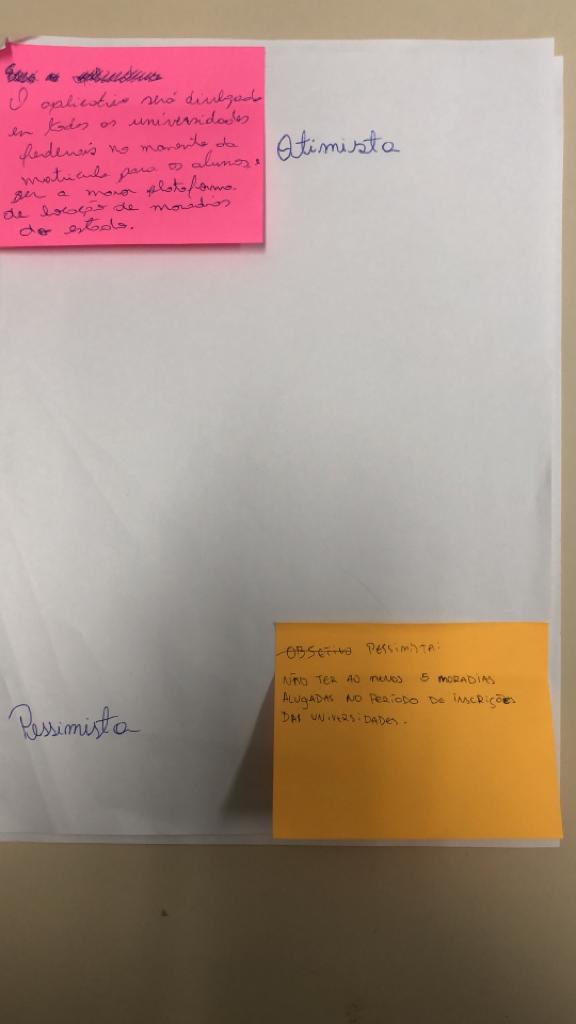 O aplicativo será divulgado
em todos os universidades
federais no momento da
matricula para os alunos e
ser a maior plataforma
de locação de moradias
do estado.
Otimista
Pessimista
OBJETIVO PESSIMISTA:
NÃO TER AO MENOS 5 MORADIAS
ALUGADAS NO PERÍODO DE INSCRIÇÕES
DAS UNIVERSIDADES.